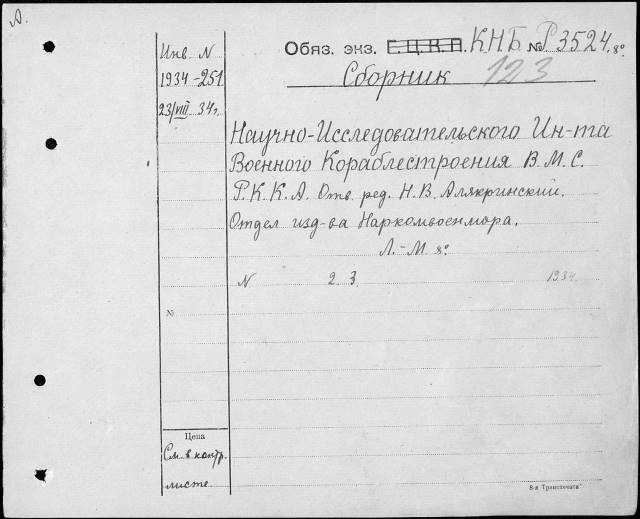 А.
Инв. N
1934-251
23/VIII 34г.
Обяз. экз. Е.Ц.К.П. К.Н.Б. № Р3524. 8°
Сборник 123
Научно-Исследовательского Ин-та
Военного Кораблестроения В.М.С.
Р.К.К.А. Отв. ред. Н.В. Алякринский.
Отдел изд-ва Наркомвоенмора.
Л.-М. 8°
N 2. 3. 1934.
№
Цена
См. в контр.
листе
8-я „Транспечать"